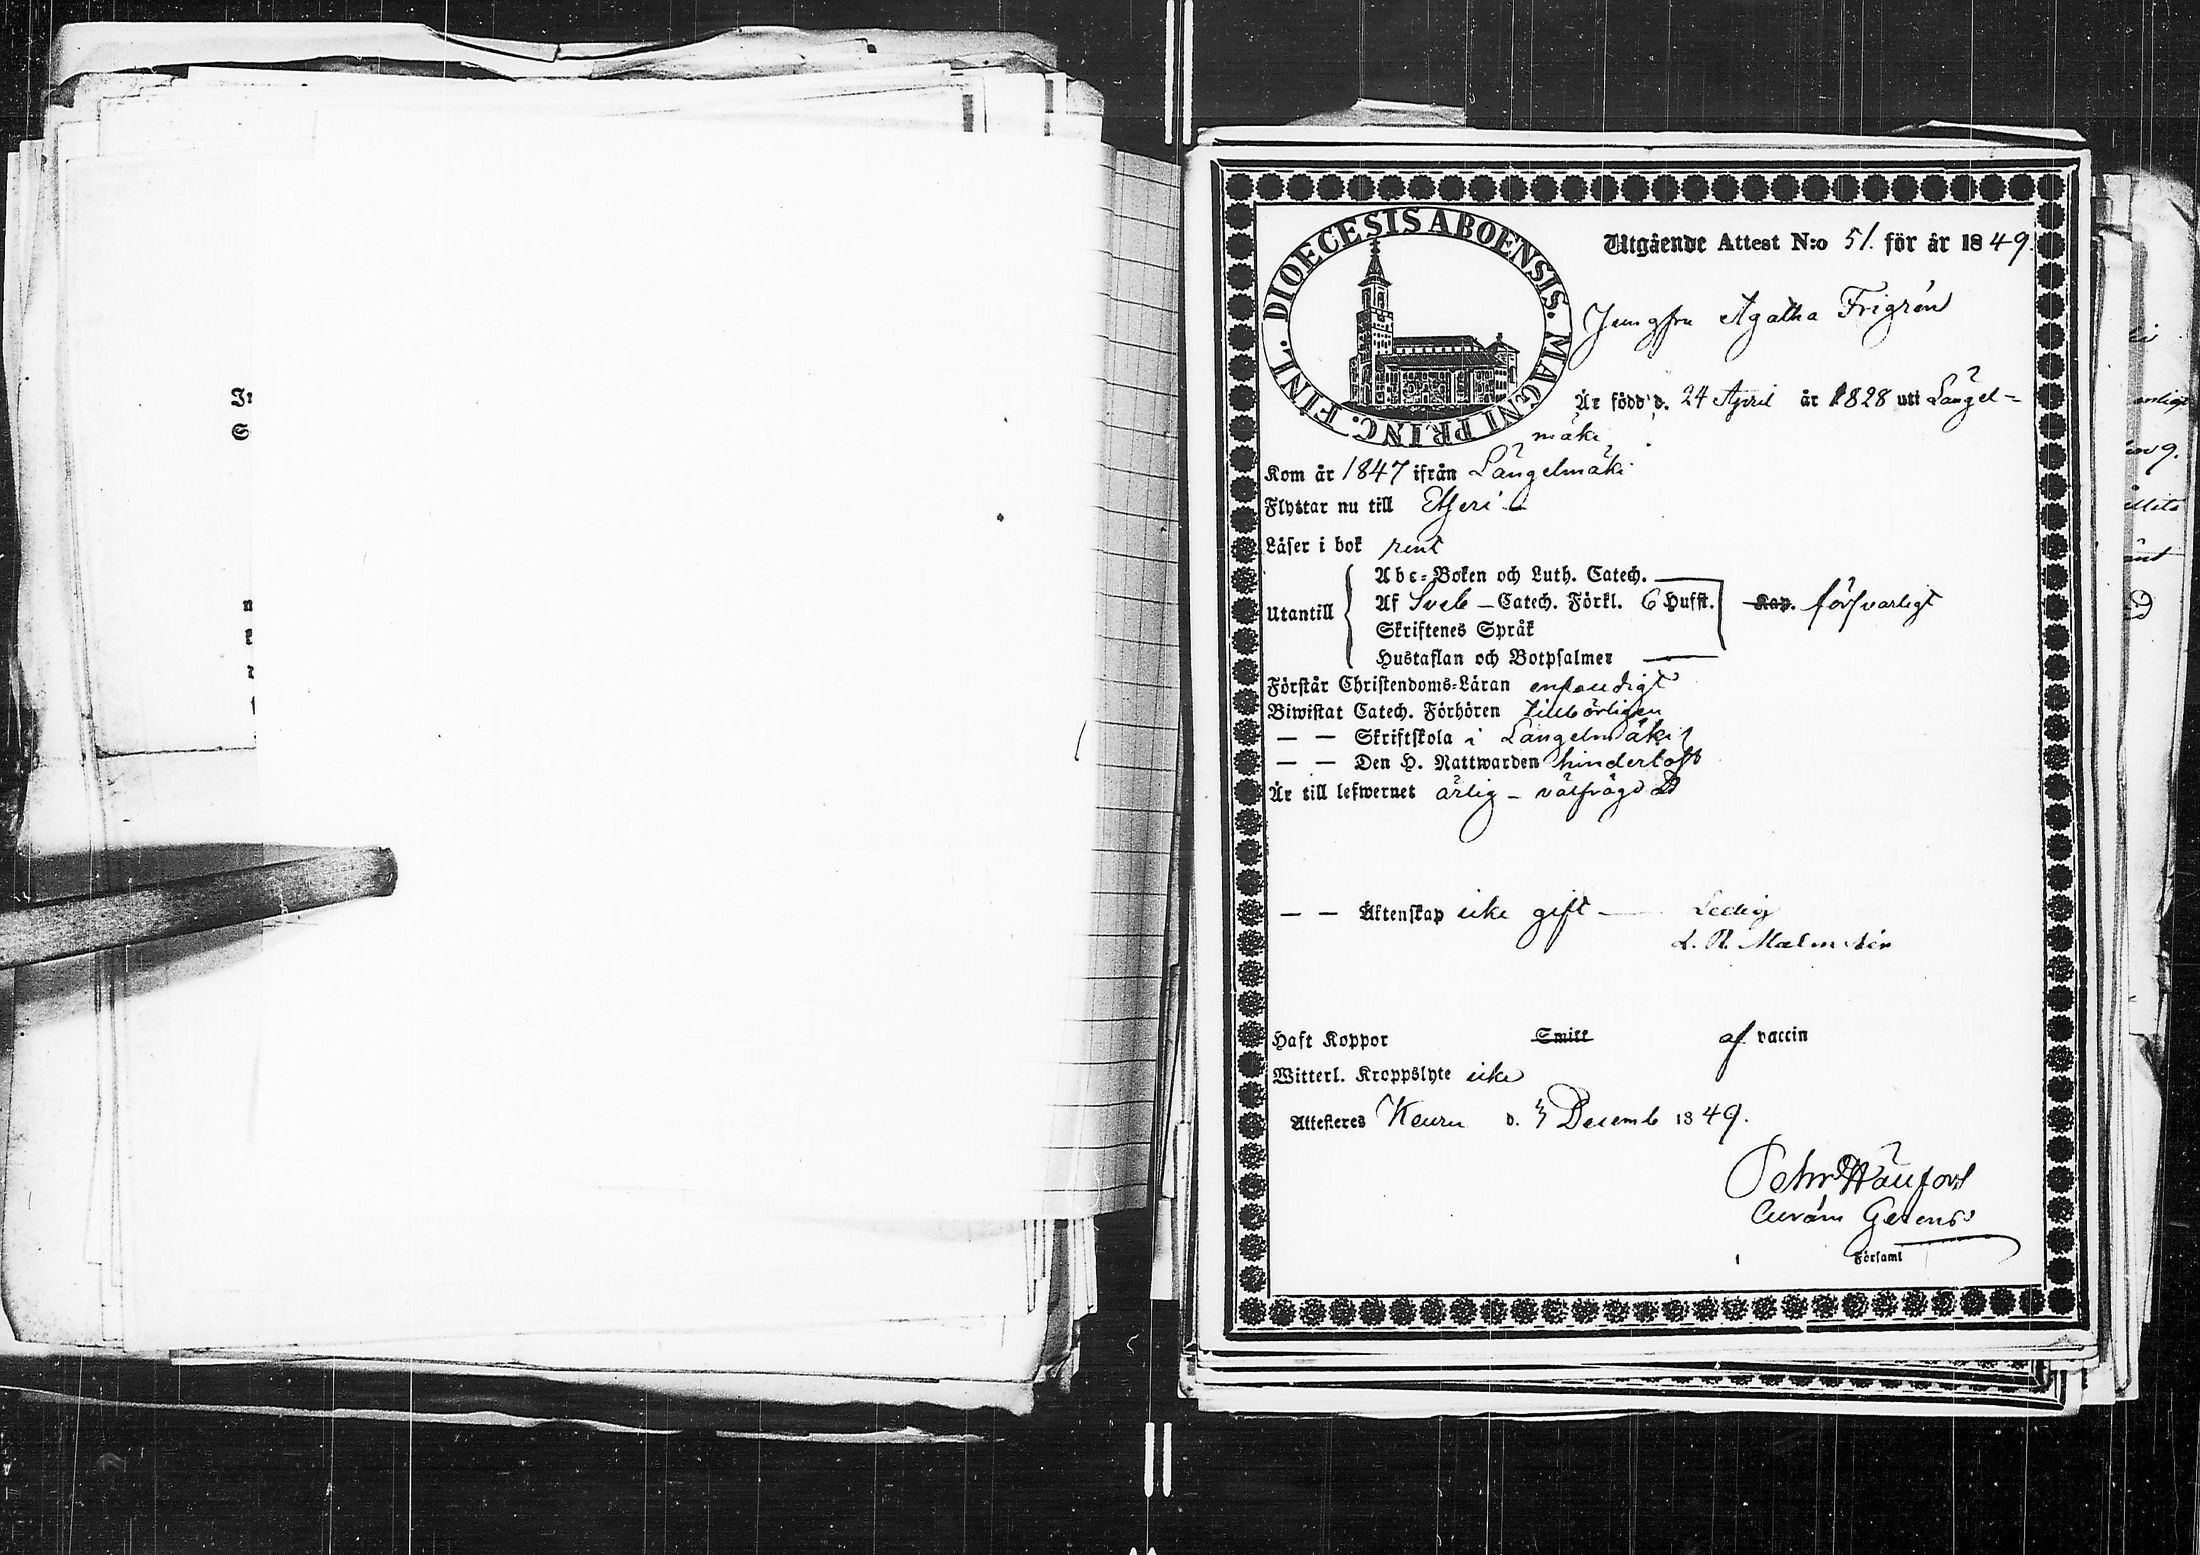 DIOECESIS ABOENSIS. MAGNI PRINC. FINL.
Utgående Attest N:o 51. för år 1849.
Jungfru Agatha Frigrén
Är född d. 24 April år 1828 uti Längel-
mäki
Kom år 1847 ifrån Längelmäki
Flyttar nu till Etseri
Läser i bok rent
Utantill
Abc-Boken och Luth. Catech.
Af Sveb - Catech. Förkl. 6 Hufst. Kap. försvarligt
Skriftenes Språk
Hustaflan och Botpsalmer
Förstår Christendoms-Läran enfaldigt
Biwistat Catech. Förhören tillbörligen
— — Skriftskola i Längelmäki
— — Den H. Nattwarden hinderlöst
Är till lefwernet ärlig - välfrägdad
— — Äktenskap icke gift — Ledig
Haft Koppor Smitt af vaccin
Witterl. Kroppslyte icke
Attesteres Keuru d. 3 Decemb 1849.
Församl